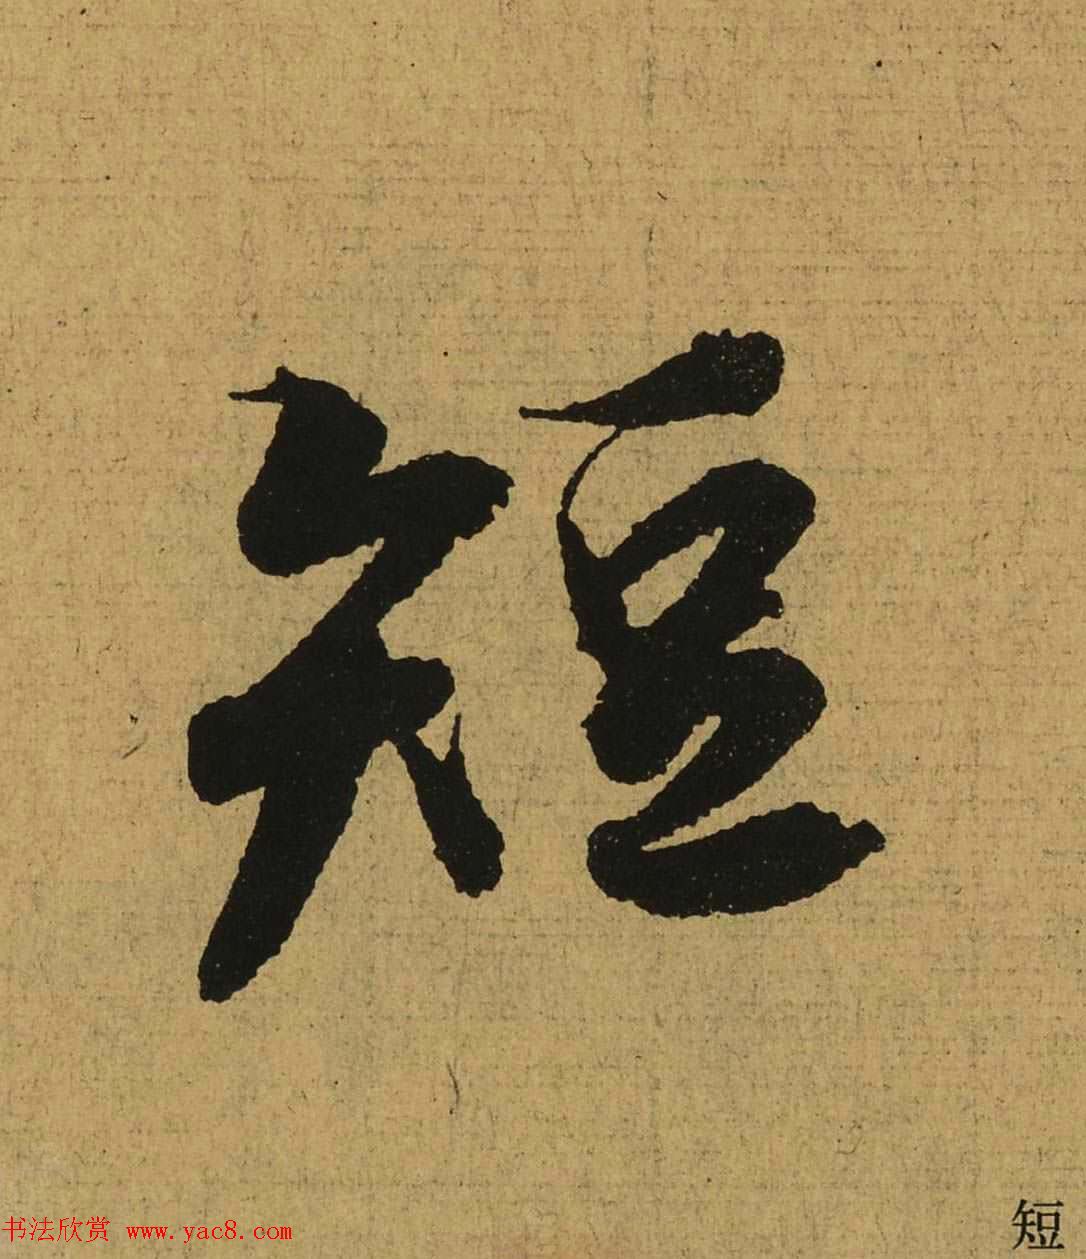 短
书法欣赏 www.yac8.com
短